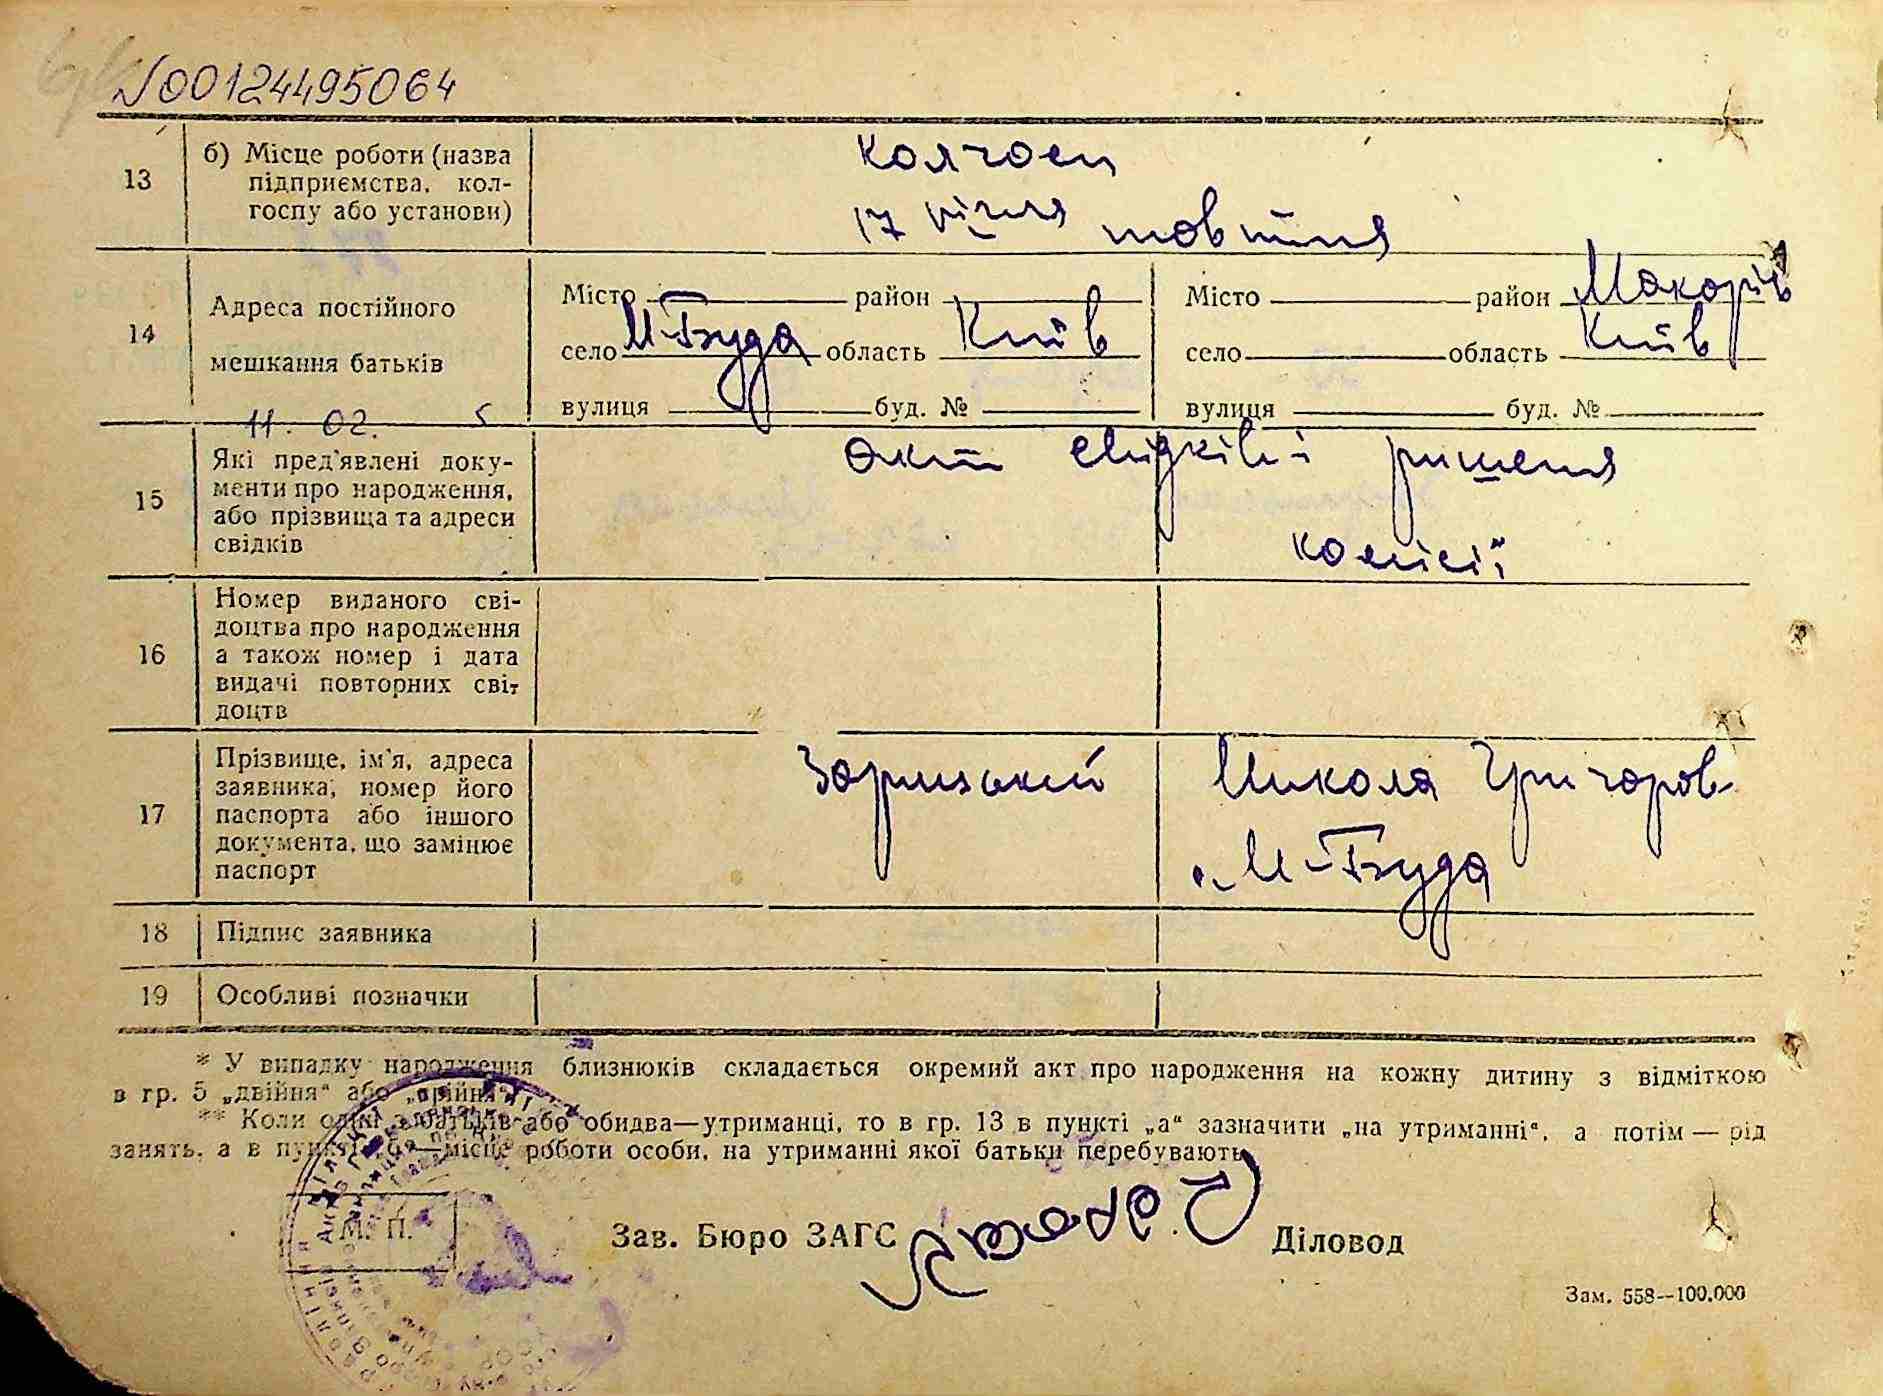 №00124495064
13 б) Місце роботи (назва
підприємства, кол-
госпу або установи)
колгосп
17 річчя жовтня
14 Адреса постійного
мешкання батьків
Місто район Місто район Макарів
село М-Буда область Київ село область Київ
вулиця буд. № вулиця буд. №
11. 02. 5
15 Які пред'явлені доку-
менти про народження,
або прізвища та адреси
свідків
акт свідків і ришення
комісії
16 Номер виданого сві-
доцтва про народження
а також номер і дата
видачі повторних сві-
доцтв
17 Прізвище, ім'я, адреса
заявника, номер його
паспорта або іншого
документа, що замінює
паспорт
Микола Григоров-
М-Буда
18 Підпис заявника
19 Особливі позначки
* У випадку народження близнюків складається окремий акт про народження на кожну дитину з відміткою
в гр. 5 „двійня“ або „трійня“.
** Коли один з батьків або обидва—утриманці, то в гр. 13 в пункті „а“ зазначити „на утриманні“, а потім — рід
занять, а в пункті „б“—місце роботи особи, на утриманні якої батьки перебувають
М. П.
Зав. Бюро ЗАГС Діловод
Зам. 558—100.000